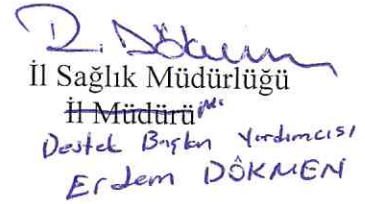 R. Dökmen
İl Sağlık Müdürlüğü
İl Müdürü
Destek Başkan Yardımcısı
Erdem DÖKMEN